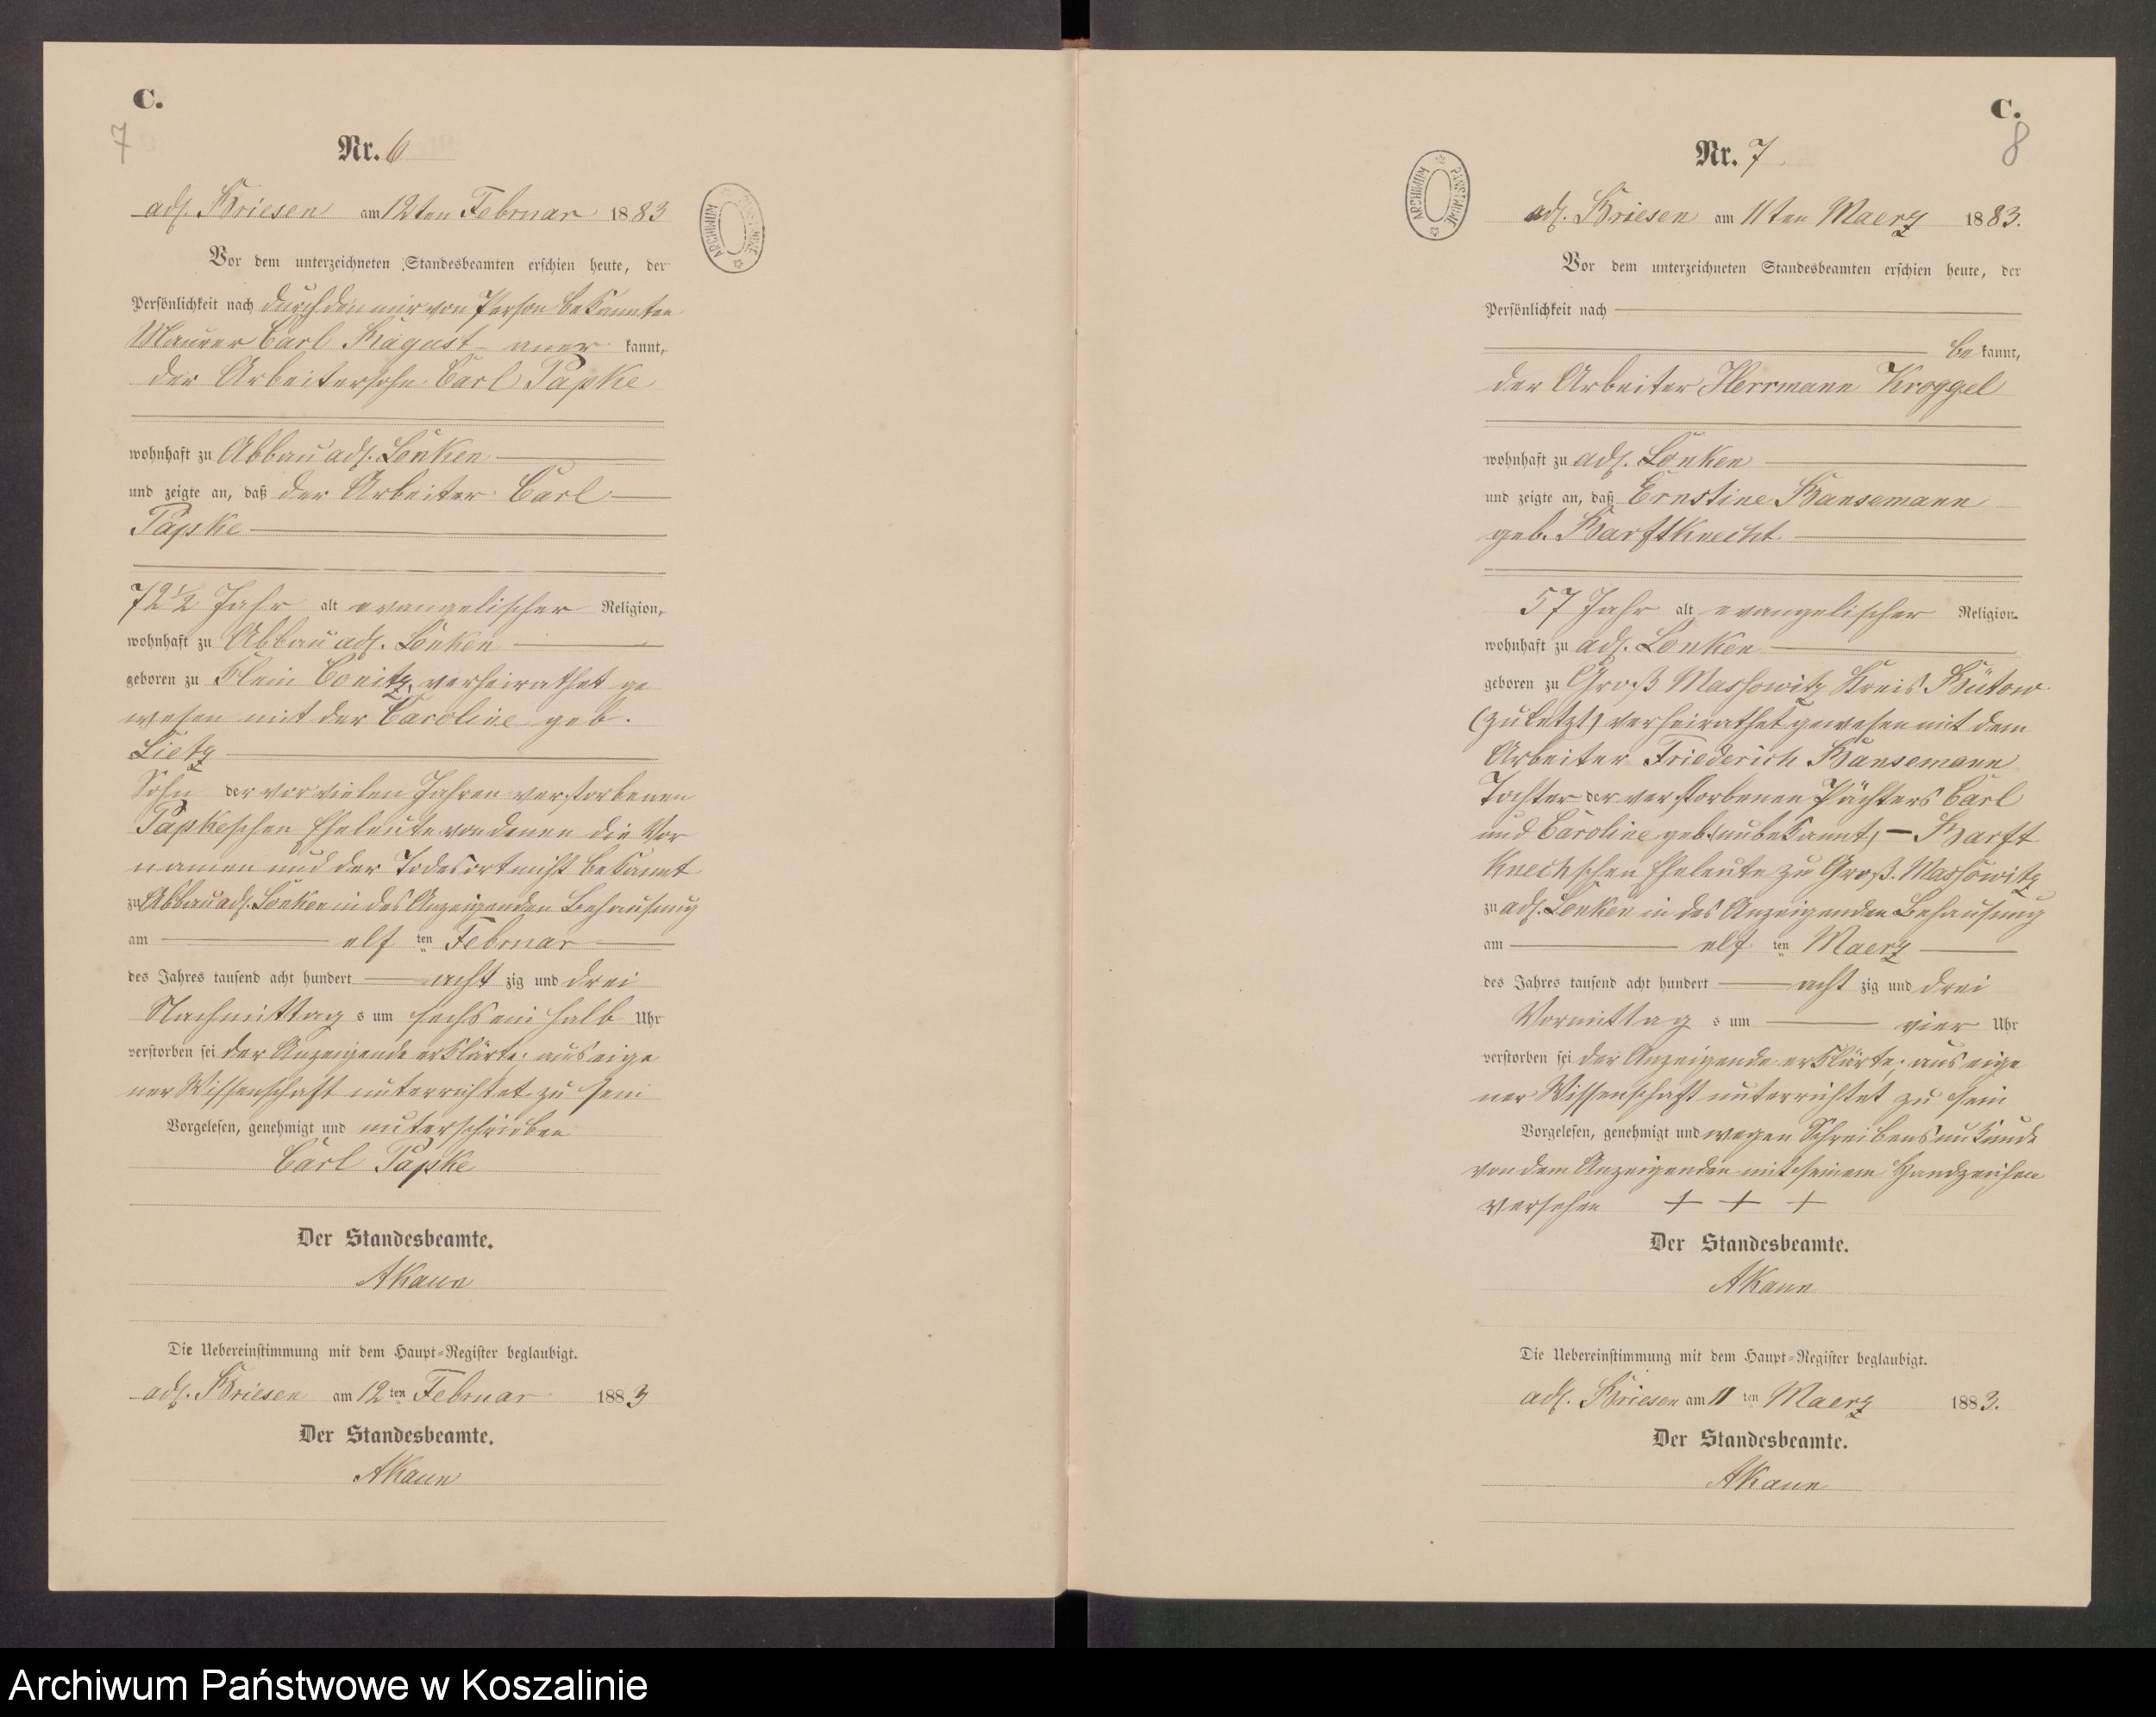 C.
7
Nr. 6
adl. Briesen am 12ten Februar 1883
Vor dem unterzeichneten Standesbeamten erschien heute, der
Persönlichkeit nach durch den mir von Person bekannten
Maurer Carl August aner kannt,
der Arbeitersohn Carl Papke
wohnhaft zu Abbau adl. Lonken
und zeigte an, daß der Arbeiter Carl
Papke
72 1/2 Jahr alt evangelischer Religion,
wohnhaft zu Abbau adl. Lonken
geboren zu Klein Conitz, verheirathet ge
wesen mit der Caroline geb.
Lietz
Sohn der vor vielen Jahren verstorbenen
Papkeschen Eheleute von denen die Vor
namen und der Todesort nicht bekannt
zu Abbau adl. Lonken in des Anzeigenden Behausung
am elf ten Februar
des Jahres tausend acht hundert acht zig und drei
Nachmittag s um sechs ein halb Uhr
verstorben sei der Anzeigende erklärte; aus eige
ner Wissenschaft unterrichtet zu sein
Vorgelesen, genehmigt und unterschrieben
Carl Papke
Der Standesbeamte.
AKaun
Die Uebereinstimmung mit dem Haupt-Register beglaubigt.
adl. Briesen am 12ten Februar 1883
Der Standesbeamte.
AKaun
ARCHIWUM PAŃSTWOWE
C.
8
Nr. 7
ARCHIWUM PAŃSTWOWE
adl. Briesen am 11ten Maerz 1883.
Vor dem unterzeichneten Standesbeamten erschien heute, der
Persönlichkeit nach
be kannt,
der Arbeiter Herrmann Kroggel
wohnhaft zu adl. Lonken
und zeigte an, daß Ernstine Bansemann
geb. Barfknecht
57 Jahr alt evangelischer Religion
wohnhaft zu adl. Lonken
geboren zu Groß Massowitz Kreis Bütow
(zuletzt) verheirathet gewesen mit dem
Arbeiter Friederich Bansemann
Tochter der verstorbenen Pächters Carl
und Caroline geb. (unbekannt) – Barft
knechschen Eheleute zu Groß. Massowitz
zu adl. Lonken in des Anzeigenden Behausung
am elf ten Maerz
des Jahres tausend acht hundert acht zig und drei
Vormittag s um vier Uhr
verstorben sei der Anzeigende erklärte; aus eige
ner Wissenschaft unterrichtet zu sein
Vorgelesen, genehmigt und wegen Schreibensunkunde
von dem Anzeigenden mit seinem Handzeichen
versehen + + +
Der Standesbeamte.
AKaun
Die Uebereinstimmung mit dem Haupt-Register beglaubigt.
adl. Briesen am 11 ten Maerz 1883.
Der Standesbeamte.
AKaun
Archiwum Państwowe w Koszalinie